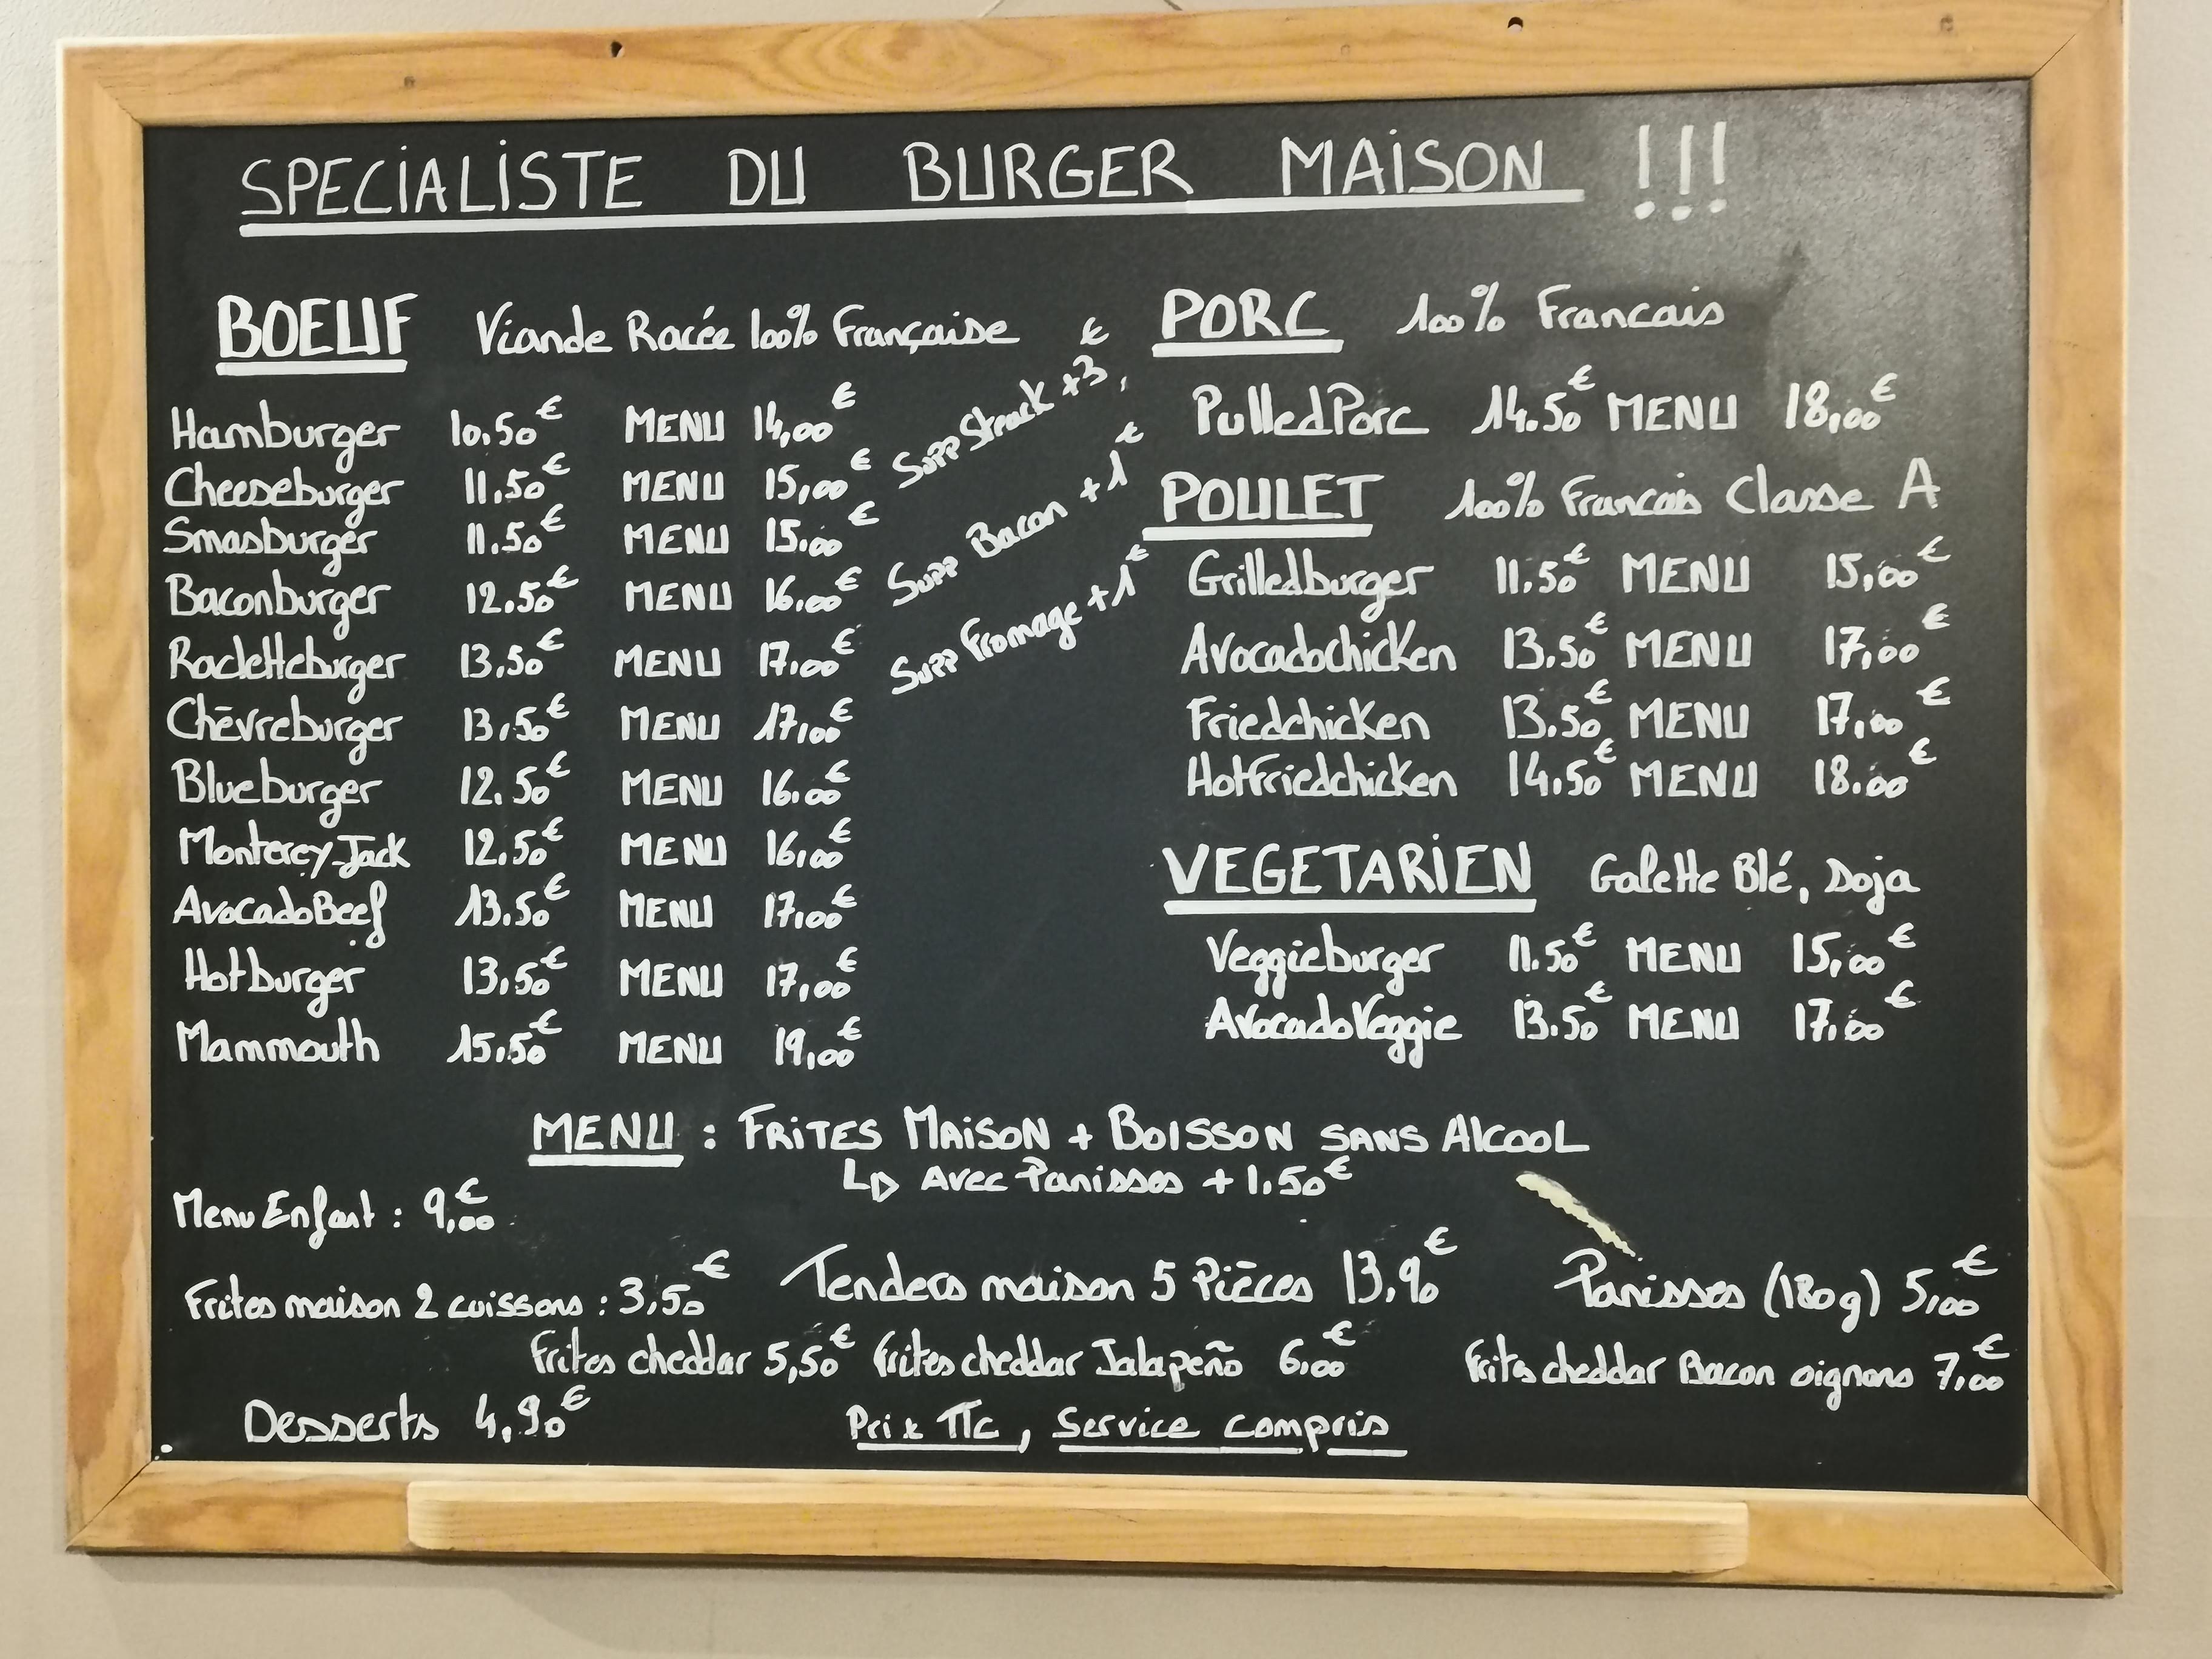 SPECIALISTE DU BURGER MAISON !!!
BOEUF Viande Racée 100% Française
Hamburger 10.50€ MENU 14,00€
Cheeseburger 11.50€ MENU 15,00€
Smasburger 11.50€ MENU 15.00€
Baconburger 12.50€ MENU 16.00€
Racletteburger 13.50€ MENU 17.00€
Chèvreburger 13,50€ MENU 17,00€
Blueburger 12.50€ MENU 16.00€
Monterey Jack 12.50€ MENU 16,00€
AvocadoBeef 13.50€ MENU 17,00€
Hotburger 13.50€ MENU 17,00€
Mammouth 15.50€ MENU 19,00€
Supp Steack +3,€
Supp Bacon +1€
Supp Fromage +1€
PORC 100% Francais
PulledPorc 14.50€ MENU 18,00€
POULET 100% Francais Classe A
Grilledburger 11.50€ MENU 15,00€
Avocadochicken 13.50€ MENU 17,00€
Friedchicken 13.50€ MENU 17,00€
Hotfriedchicken 14.50€ MENU 18.00€
VEGETARIEN Galette Blé, Soja
Veggieburger 11.50€ MENU 15,00€
AvocadoVeggie 13.50€ MENU 17,00€
MENU : FRITES MAISON + BOISSON SANS AlCOOL
↳ Avec Panisses + 1.50€
Menu Enfant : 9,00€
Frites maison 2 cuissons : 3,50€ Tenders maison 5 Pièces 13,90€ Panisses (180g) 5,00€
Frites cheddar 5,50€ Frites cheddar Jalapeño 6,00€ Frites cheddar Bacon oignons 7,00€
Desserts 4,90€ Prix TTC, Service compris